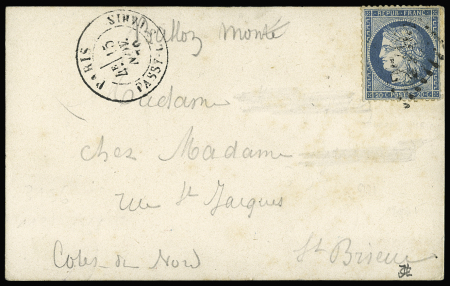 Ballon monté
PARIS PASSY-LÈS-PARIS
REPUB. FRANC.
Madame
chez Madame
rue St Jacques
Cotes du Nord St Brieuc